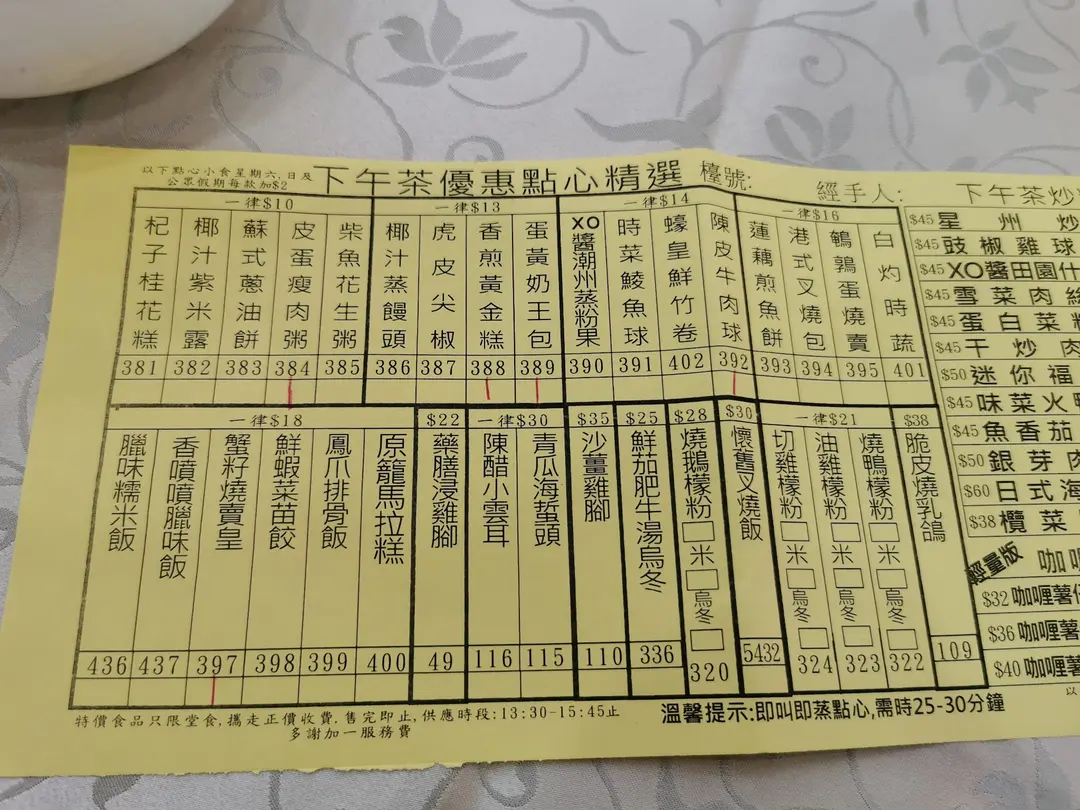 以下點心小食星期六,日及
公眾假期每款加$2
下午茶優惠點心精選
檯號:
經手人:
一律$10
杞子桂花糕
椰汁紫米露
蘇式蔥油餅
皮蛋瘦肉粥
柴魚花生粥
381 382 383 384 385
一律$13
椰汁蒸饅頭
虎皮尖椒
香煎黃金糕
蛋黃奶王包
386 387 388 389
一律$14
XO醬潮州蒸粉果
時菜鯪魚球
蠔皇鮮竹卷
陳皮牛肉球
390 391 402 392
一律$16
蓮藕煎魚餅
港式叉燒包
鵪鶉蛋燒賣
白灼時蔬
393 394 395 401
一律$18
臘味糯米飯
香噴噴臘味飯
蟹籽燒賣皇
鮮蝦菜苗餃
鳳爪排骨飯
原籠馬拉糕
436 437 397 398 399 400
$22
藥膳浸雞腳
49
一律$30
陳醋小雲耳
青瓜海蜇頭
116 115
$35
沙薑雞腳
110
$25
鮮茄肥牛湯烏冬
336
$28
燒鵝檬粉 米 烏冬
320
$30
懷舊叉燒飯
5432
一律$21
切雞檬粉 米 烏冬
油雞檬粉 米 烏冬
燒鴨檬粉 米 烏冬
324 323 322
$38
脆皮燒乳鴿
109
下午茶炒
$45 星州炒
$45 豉椒雞球
$45 XO醬田園什
$45 雪菜肉絲
$45 蛋白菜粒
$45 干炒肉
$50 迷你福
$45 味菜火鴨
$45 魚香茄
$50 銀芽肉
$60 日式海
$38 欖菜
輕量版 咖喱
$32 咖喱薯仔
$36 咖喱薯
$40 咖喱薯
以
特價食品只限堂食,攜走正價收費.售完即止,供應時段:13:30-15:45止
多謝加一服務費
溫馨提示:即叫即蒸點心,需時25-30分鐘